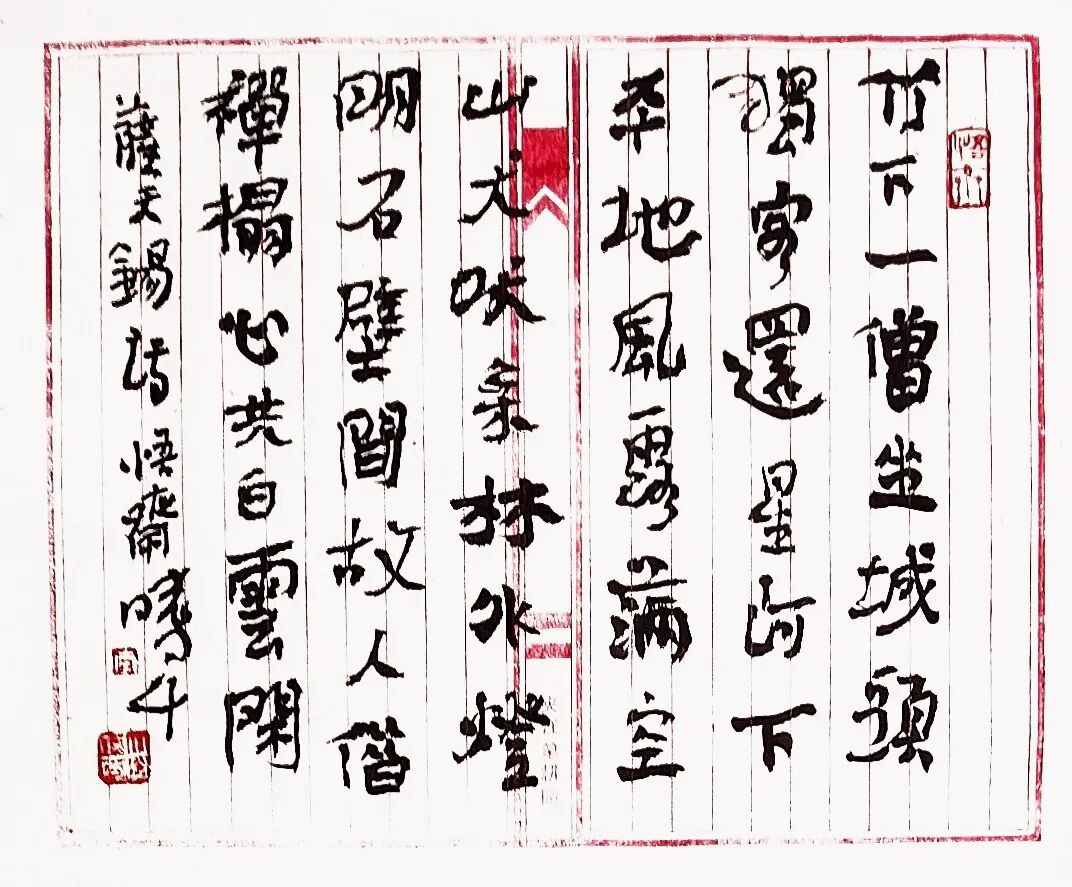 竹下一僧坐城頭
獨客還星河下
平地風露滿空
山犬吠桑林外燈
明石壁間故人借
禪榻心共白雲閑
薩天錫詩 悟齋